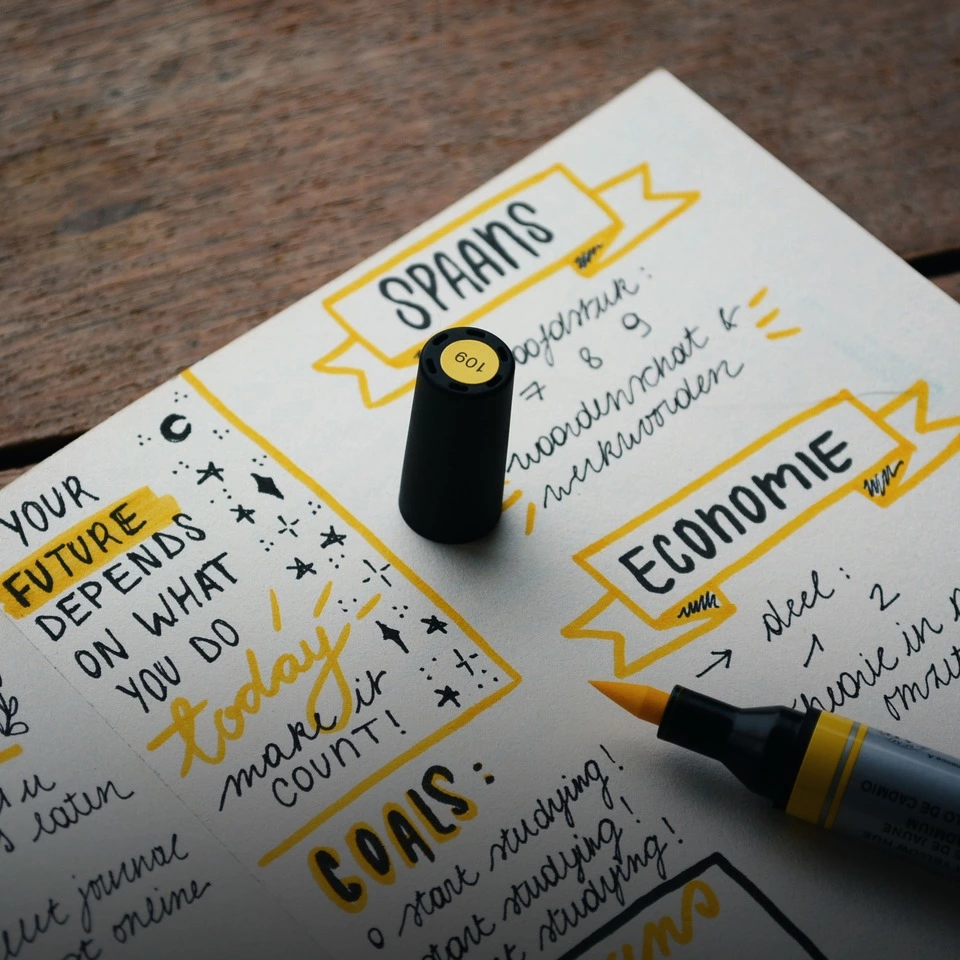 SPAANS
7 8 9
woordenschat &
werkwoorden
109
ECONOMIE
→ deel:
1 2
theorie in
YOUR
FUTURE
DEPENDS
ON WHAT
YOU DO
today
make it
COUNT!
GOALS:
o start studying!
start studying!
studying!
laten
journal
online